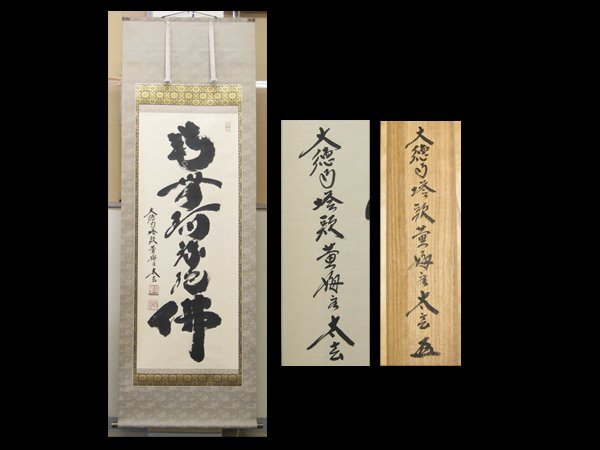 南無阿弥陀佛
大徳寺塔頭黄梅主太玄
大徳寺塔頭黄梅主太玄
大徳寺塔頭黄梅主太玄